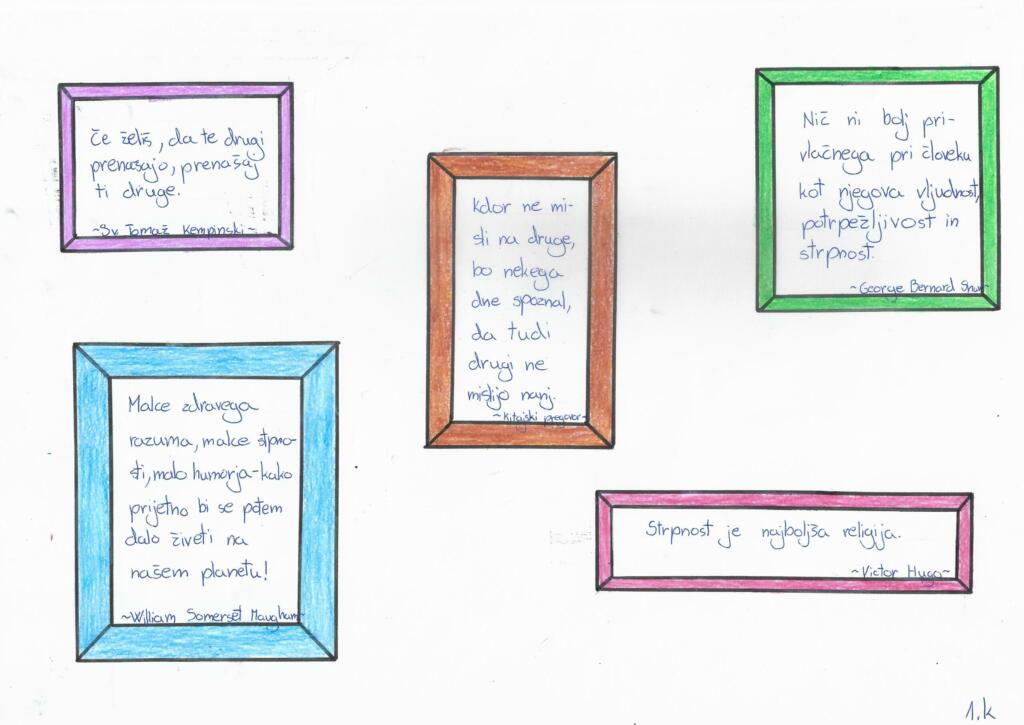 Če želiš, da te drugi
prenašajo, prenašaj
ti druge.
~Sv. Tomaž Kempinski~
Kdor ne mi-
sli na druge,
bo nekega
dne spoznal,
da tudi
drugi ne
mislijo nanj.
~Kitajski pregovor~
Nič ni bolj pri-
vlačnega pri človeku
kot njegova vljudnost,
potrpežljivost in
strpnost.
~George Bernard Shaw~
Malce zdravega
razuma, malce strpno-
sti, malo humorja-kako
prijetno bi se potem
dalo živeti na
našem planetu!
~William Somerset Maugham~
Strpnost je najboljša religija.
~Victor Hugo~
1.k